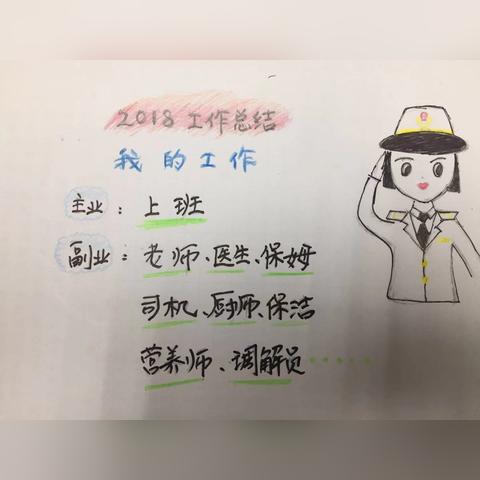 2018 工作总结
我的工作
主业：上班
副业：老师、医生、保姆
司机、厨师、保洁
营养师、调解员……